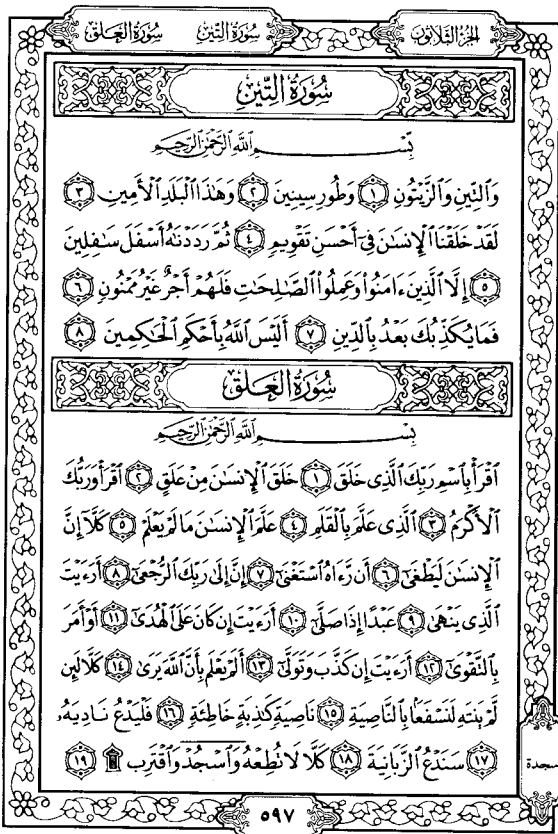 الجزء الثلاثون سورة التين سورة العلق
سورة التين
بِسْمِ ٱللَّهِ ٱلرَّحْمَٰنِ ٱلرَّحِيمِ
وَٱلتِّينِ وَٱلزَّيْتُونِ ١ وَطُورِ سِينِينَ ٢ وَهَٰذَا ٱلْبَلَدِ ٱلْأَمِينِ ٣
لَقَدْ خَلَقْنَا ٱلْإِنسَٰنَ فِىٓ أَحْسَنِ تَقْوِيمٍ ٤ ثُمَّ رَدَدْنَٰهُ أَسْفَلَ سَٰفِلِينَ
٥ إِلَّا ٱلَّذِينَ ءَامَنُوا۟ وَعَمِلُوا۟ ٱلصَّٰلِحَٰتِ فَلَهُمْ أَجْرٌ غَيْرُ مَمْنُونٍ ٦
فَمَا يُكَذِّبُكَ بَعْدُ بِٱلدِّينِ ٧ أَلَيْسَ ٱللَّهُ بِأَحْكَمِ ٱلْحَٰكِمِينَ ٨
سورة العلق
بِسْمِ ٱللَّهِ ٱلرَّحْمَٰنِ ٱلرَّحِيمِ
ٱقْرَأْ بِٱسْمِ رَبِّكَ ٱلَّذِى خَلَقَ ١ خَلَقَ ٱلْإِنسَٰنَ مِنْ عَلَقٍ ٢ ٱقْرَأْ وَرَبُّكَ
ٱلْأَكْرَمُ ٣ ٱلَّذِى عَلَّمَ بِٱلْقَلَمِ ٤ عَلَّمَ ٱلْإِنسَٰنَ مَا لَمْ يَعْلَمْ ٥ كَلَّآ إِنَّ
ٱلْإِنسَٰنَ لَيَطْغَىٰٓ ٦ أَن رَّءَاهُ ٱسْتَغْنَىٰٓ ٧ إِنَّ إِلَىٰ رَبِّكَ ٱلرُّجْعَىٰٓ ٨ أَرَءَيْتَ
ٱلَّذِى يَنْهَىٰ ٩ عَبْدًا إِذَا صَلَّىٰٓ ١٠ أَرَءَيْتَ إِن كَانَ عَلَى ٱلْهُدَىٰٓ ١١ أَوْ أَمَرَ
بِٱلتَّقْوَىٰٓ ١٢ أَرَءَيْتَ إِن كَذَّبَ وَتَوَلَّىٰٓ ١٣ أَلَمْ يَعْلَم بِأَنَّ ٱللَّهَ يَرَىٰ ١٤ كَلَّا لَئِن
لَّمْ يَنتَهِ لَنَسْفَعًۢا بِٱلنَّاصِيَةِ ١٥ نَاصِيَةٍ كَٰذِبَةٍ خَاطِئَةٍ ١٦ فَلْيَدْعُ نَادِيَهُۥ
١٧ سَنَدْعُ ٱلزَّبَانِيَةَ ١٨ كَلَّا لَا تُطِعْهُ وَٱسْجُدْ وَٱقْتَرِب ۩ ١٩
سجدة
٥٩٧